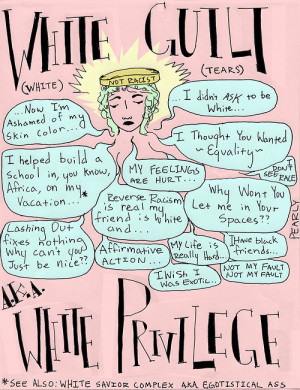 WHITE GUILT
(WHITE)
(TEARS)
NOT RACIST
...Now I'm
Ashamed of my
Skin color...
...I didn't ASK to be
White...
I Thought You Wanted
~Equality~
I helped build a
School in, you know,
Africa, on my
Vacation...*
MY FEELINGS
ARE HURT...
I
DON'T
SEE RACE
Reverse Racism
is real my
friend is white
and...
Why Wont You
Let me in Your
Spaces??
Lashing Out
fixes nothing
Why can't you
Just be Nice??
Affirmative
ACTION...
My Life is
Really Hard...
I Have black
friends...
I Wish I
Was Exotic...
NOT MY FAULT
NOT MY FAULT
PEARLY
A.K.A.
WHITE PRIVILEGE
*SEE ALSO: WHITE SAVIOR COMPLEX AKA EGOTISTICAL ASS